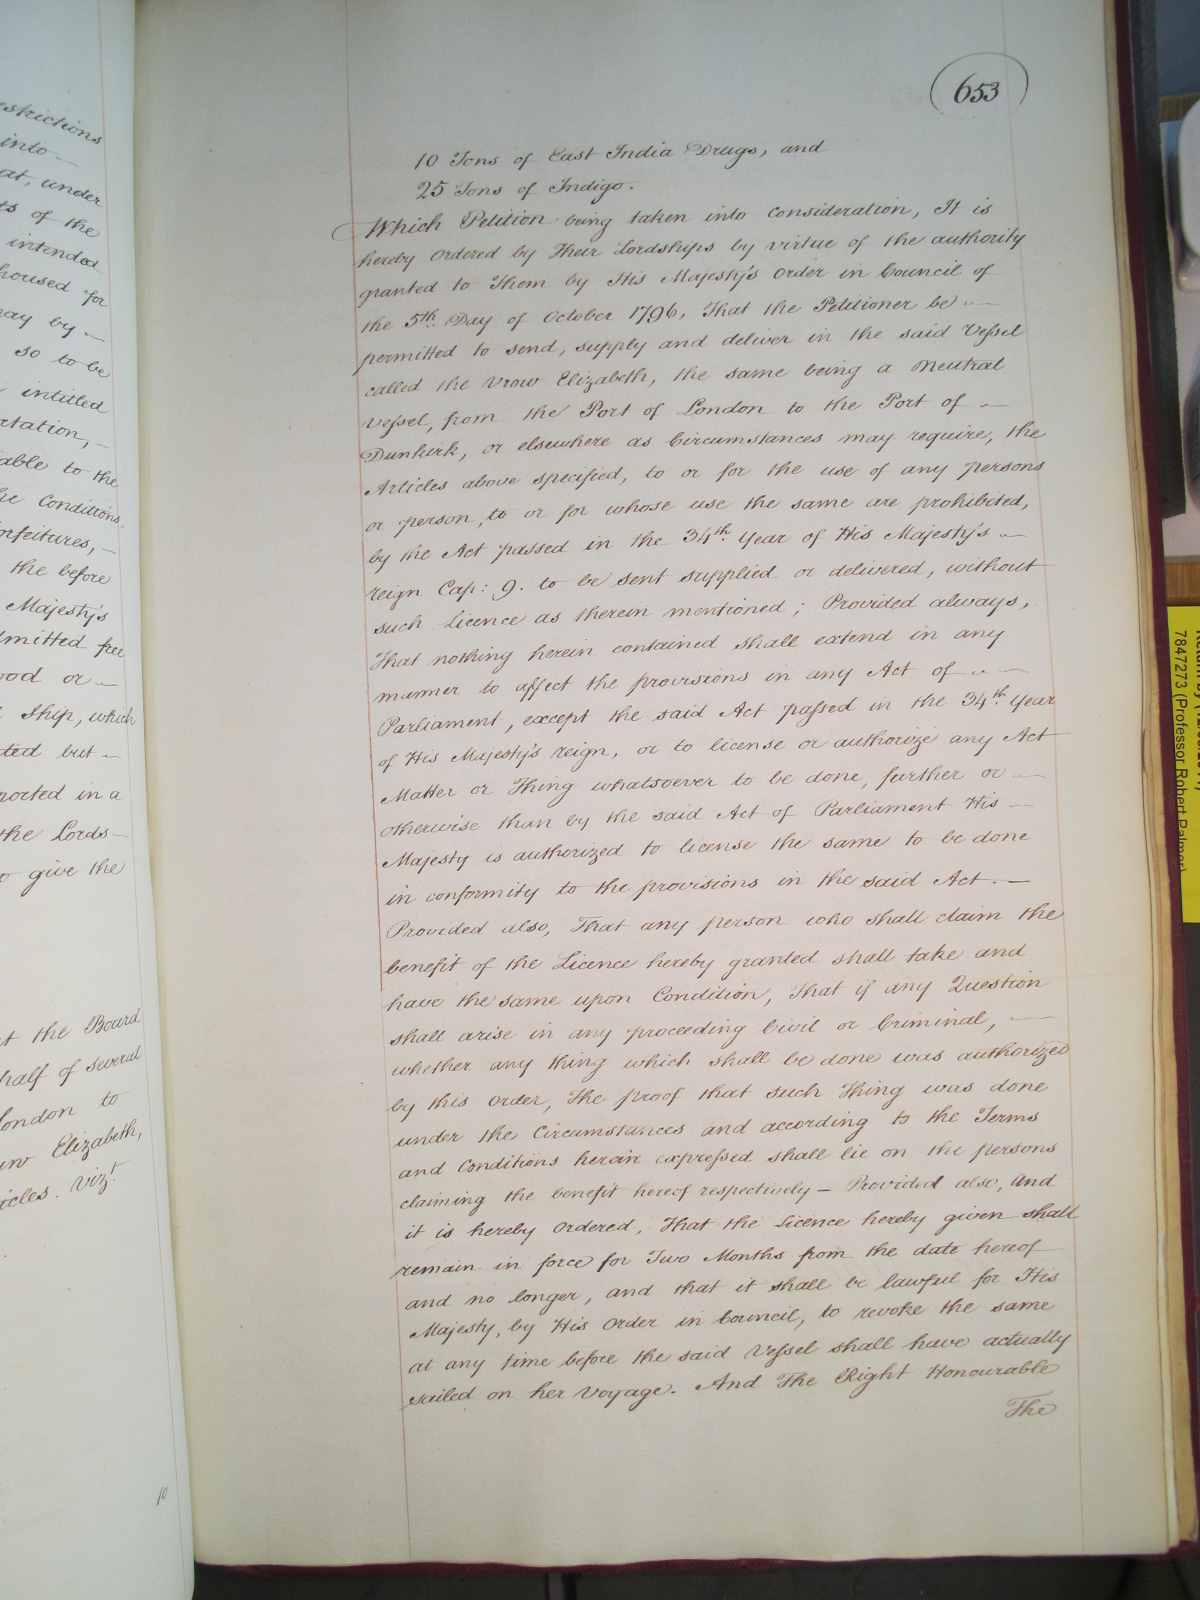 eskictions
into
at, under
ts of the
intended
housed for
nay by
so to be
intitled
rtation,
able to the
he Conditions,
orfeitures,
the before
Majesty's
dmitted free
ood or
Ship, which
ted but
ported in a
the Lords
o give the
at the Board
half of several
London to
Elizabeth,
icles. Vizt.
10
653
10 Tons of East India Drugs, and
25 Tons of Indigo.
Which Petition being taken into consideration, It is
hereby Ordered by Their Lordships by virtue of the authority
granted to Them by His Majesty's Order in Council of
the 5th. Day of October 1796, That the Petitioner be
permitted to send, supply and deliver in the said Vessel
called the Vrow Elizabeth, the same being a Neutral
Vessel, from the Port of London to the Port of
Dunkirk, or elsewhere as Circumstances may require, the
Articles above specified, to or for the use of any persons
or person, to or for whose use the same are prohibited,
by the Act passed in the 34th. Year of His Majesty's
reign Cap: 9. to be sent supplied or delivered, without
such Licence as therein mentioned; Provided always,
That nothing herein contained shall extend in any
manner to affect the provisions in any Act of
Parliament, except the said Act passed in the 34th. Year
of His Majesty's reign, or to license or authorize any Act
Matter or Thing whatsoever to be done, further or
otherwise than by the said Act of Parliament His
Majesty is authorized to license the same to be done
in conformity to the provisions in the said Act.
Provided also, That any person who shall claim the
benefit of the Licence hereby granted shall take and
have the same upon Condition, That if any Question
shall arise in any proceeding Civil or Criminal,
whether any thing which shall be done was authorized
by this Order, The proof that such Thing was done
under the Circumstances and according to the Terms
and Conditions herein expressed shall lie on the persons
claiming the benefit hereof respectively – Provided also, And
it is hereby Ordered, That the Licence hereby given shall
remain in force for Two Months from the date hereof
and no longer, and that it shall be lawful for His
Majesty, by His Order in Council, to revoke the same
at any time before the said Vessel shall have actually
sailed on her Voyage. And The Right Honourable
The
7847273 (Professor Robert Palmer)